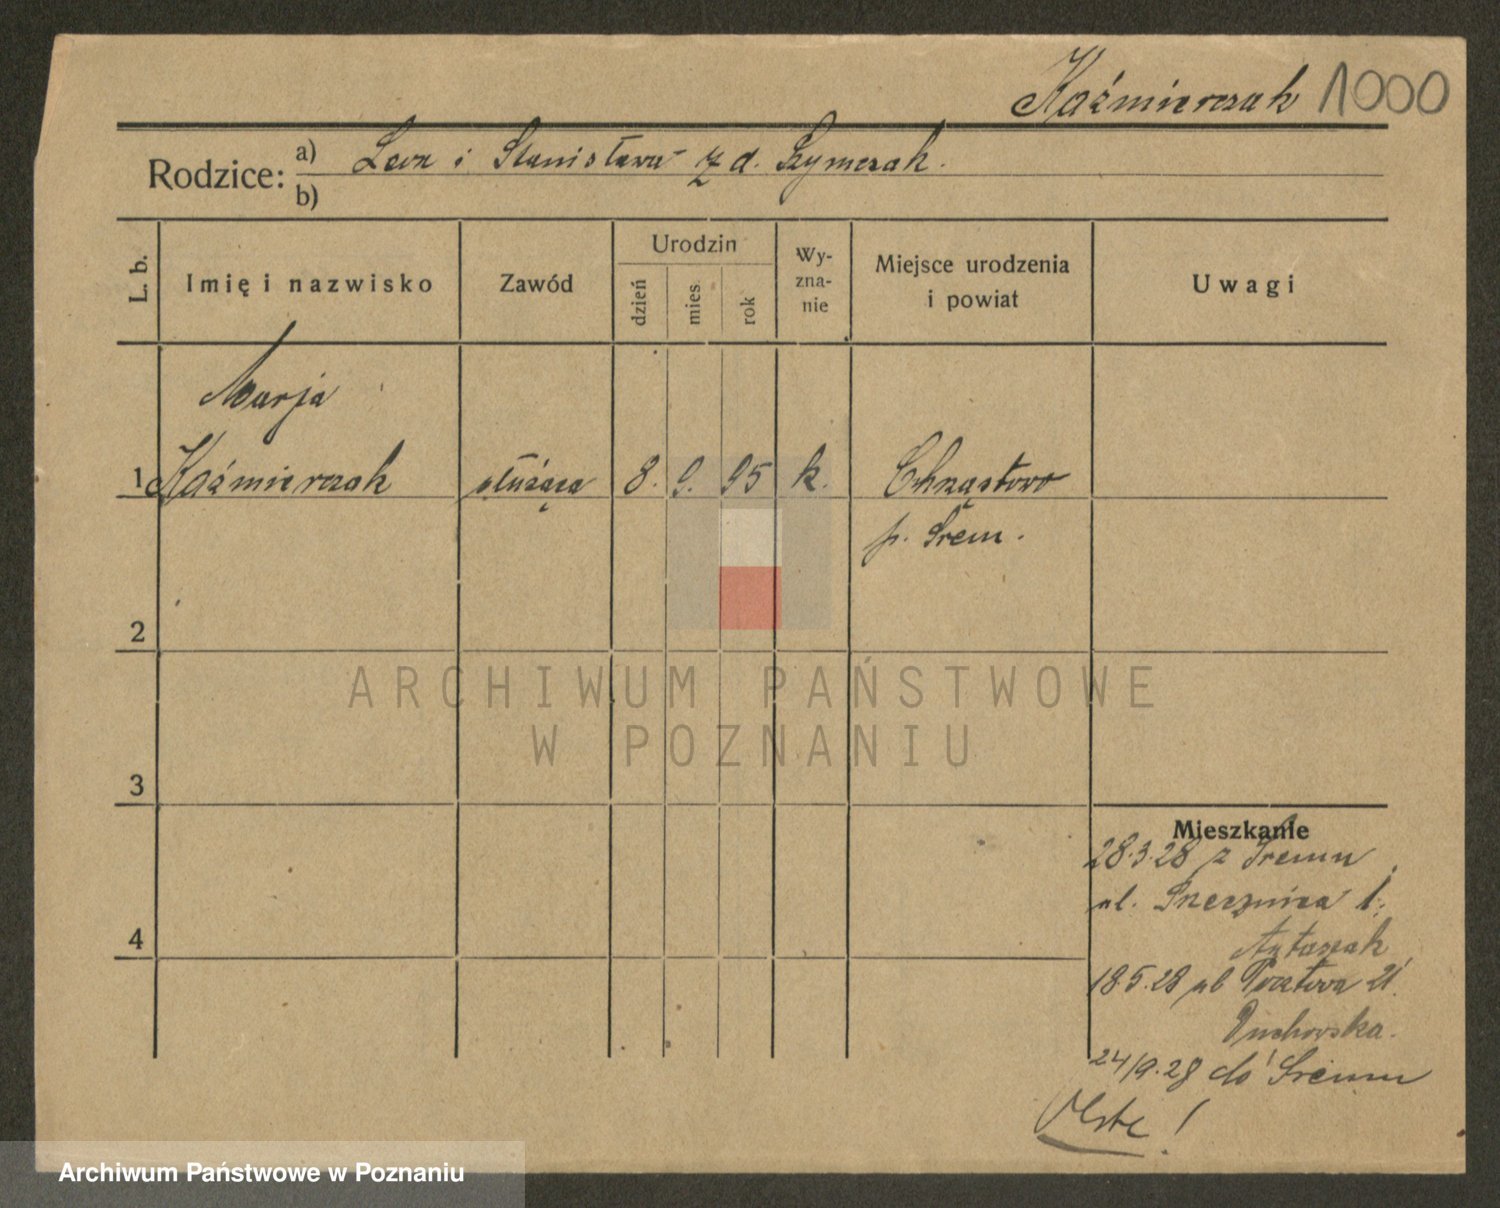 Kaźmierczak 1000
Rodzice: a) Leon i Stanisława z d. Szymczak.
b)
L. b. Imię i nazwisko Zawód Urodzin dzień mies. rok Wy-zna-nie Miejsce urodzenia i powiat Uwagi
Marja
1 Kaźmierczak służąca 8. 9. 95 k. Chrząstowo
p. Śrem.
2
ARCHIWUM PAŃSTWOWE
W POZNANIU
3
Mieszkanie
28.3.28 z Śremu
ul. 1.
4
18.5.28 ul Pocztowa 21.
24/9.28 do Śremu
Archiwum Państwowe w Poznaniu